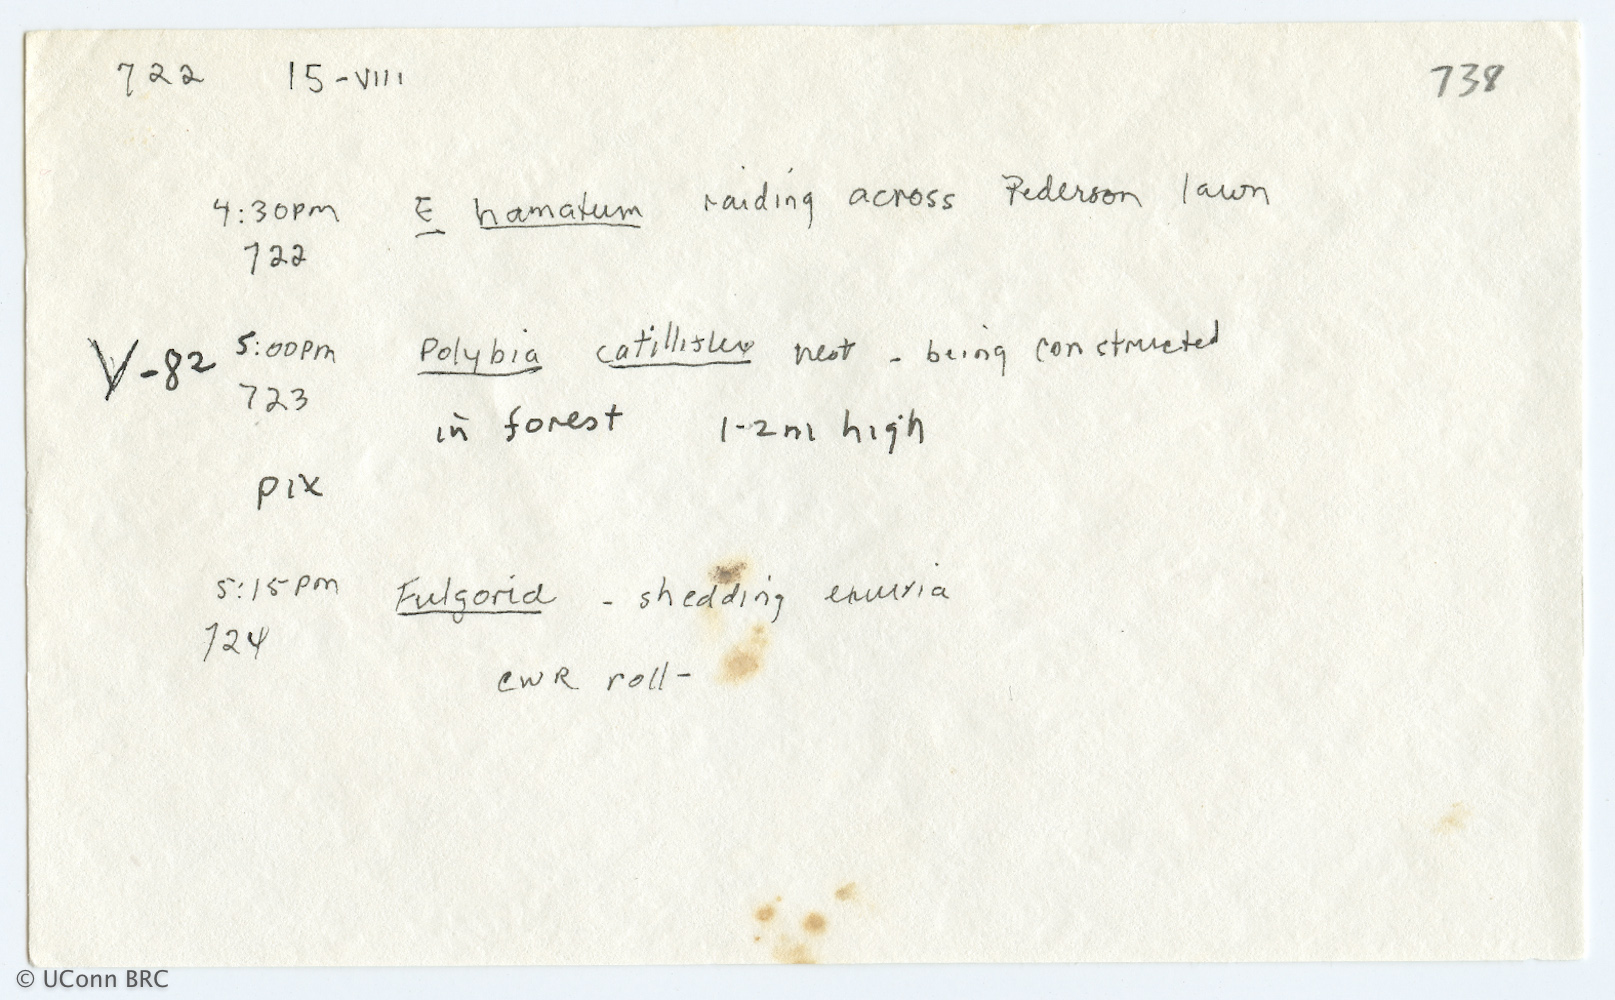 722 15-VIII 738
4:30pm E hamatum raiding across Pederson lawn
722
V-82 5:00pm Polybia nest - being constructed
723 in forest 1-2m high
pix
5:15pm Fulgorid - shedding exuvia
724
CWR roll-
© UConn BRC